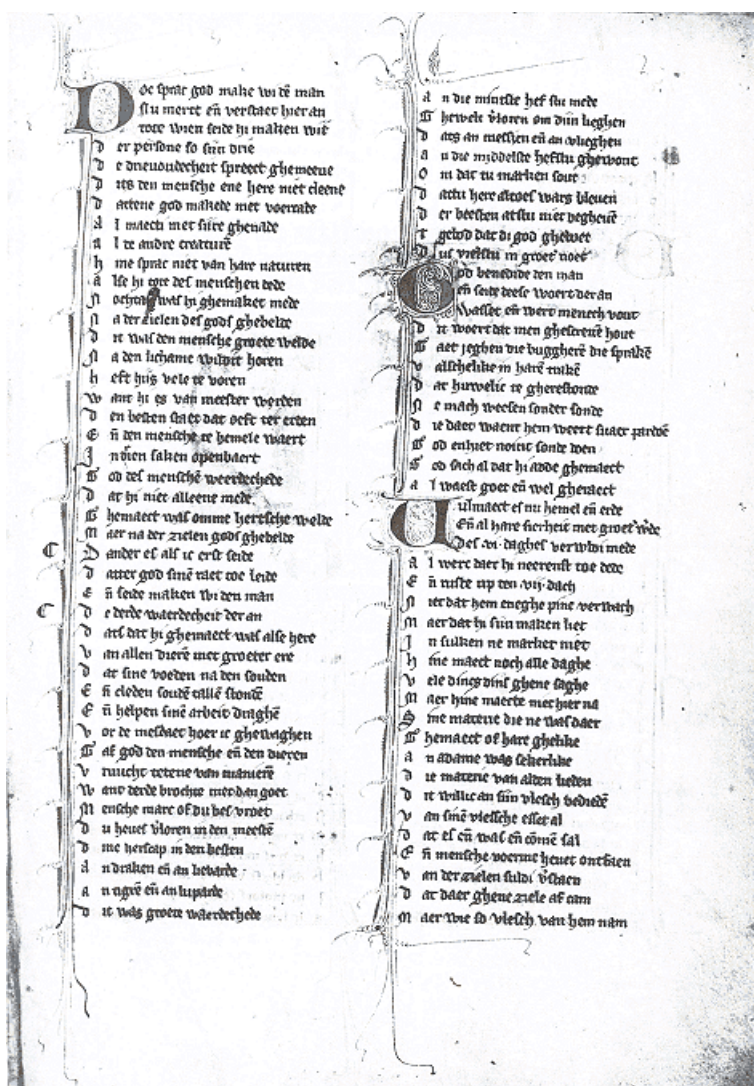 Doe sprac god make wi dē man
Siu merct eñ verstaet hier an
tote wien seide hi maken wil
der persone so sijn drie
de drieuoudecheit spreect ghemeene
dits den mensche ene here niet cleene
dattene god makede met voerrade
al maecti met sire ghenade
alle andre creaturē
hine sprac niet van hare naturen
alse hi tote des menschen dede
Nochtan was hi ghemaket mede
Na der zielen des gods ghebelde
dit was den mensche groete welde
Na den lichame wildijt horen
heft hijs vele te voren
want hi es van meester worden
den besten staet dat oeft ter erden
Eñ den mensche te hemele waert
In dien saken openbaert
God des menschē weerdechede
dat hi niet alleene mede
Ghemaect was omme hertsche welde
Maer na der zielen gods ghebelde
Dander es als ic erst seide
datter god sinē raet toe leide
Eñ seide maken wi den man
de derde waerdecheit der an
dats dat hi ghemaect was alse here
van allen dierē met groeter ere
dat sine voeden na den souden
Eñ cleden soudē tallē stondē
Eñ helpen sinē arbeit draghē
vor de mesdaet hoer ic ghewaghen
Gaf god den mensche eñ den dieren
vruucht tetene van manierē
want derde brochte met dan goet
Mensche marc of du bes vroet
du heues vloren in den meestē
dine herscap in den besten
an draken eñ an lybarde
an tigre eñ an luparde
dit was groete waerdechede
an die minste hef stu mede
Ghewelt vloren om dijn lieghen
dats an messhen eñ an vlieghen
an die middelste hefstu ghewout
om dat tu marken sout
dattu here altoes waers bleuen
der beesten atstu niet begheuē
tgebod dat di god ghewet
Dus vielstu in groet noet
God benedide den man
eñ seide dese woert der an
wasset eñ wert menech vout
dit woert dat men ghescreuē hout
Gaet jeghen die buggherē die sprakē
valschelike in harē rakē
dat huwelic te gherestonde
Ne mach weesen sonder sonde
die daer waent hem weert suaer pardoē
God enhiet noint sonde doen
God sach al dat hi adde ghemaect
al waest goet eñ wel gheraect
Vulmaect es nu hemel eñ erde
Eñ al hare sierheit met groet wde
Des .vi. daghes verwldi mede
al werc daer hi neerenst toe dede
Eñ ruste up ten .vij. dach
Niet dat hem eneghe pine verwach
Maer dat hi sijn maken liet
In sulken ne market niet
hine maect noch alle daghe
vele dincs dins ghene saghe
Maer hine maecte niet hier na
Sine materie die ne was daer
Ghemaect of hare ghelike
an adame was sekerlike
die materie van alden lieden
dit willic an sijn vlesch bediedē
van sinē vleessche esset al
dat es eñ was eñ comē sal
Eñ mensche voerme heuet ontfaen
van der zielen suldi vstaen
dat daer ghene ziele af cam
Maer wie so vlesch van hem nam